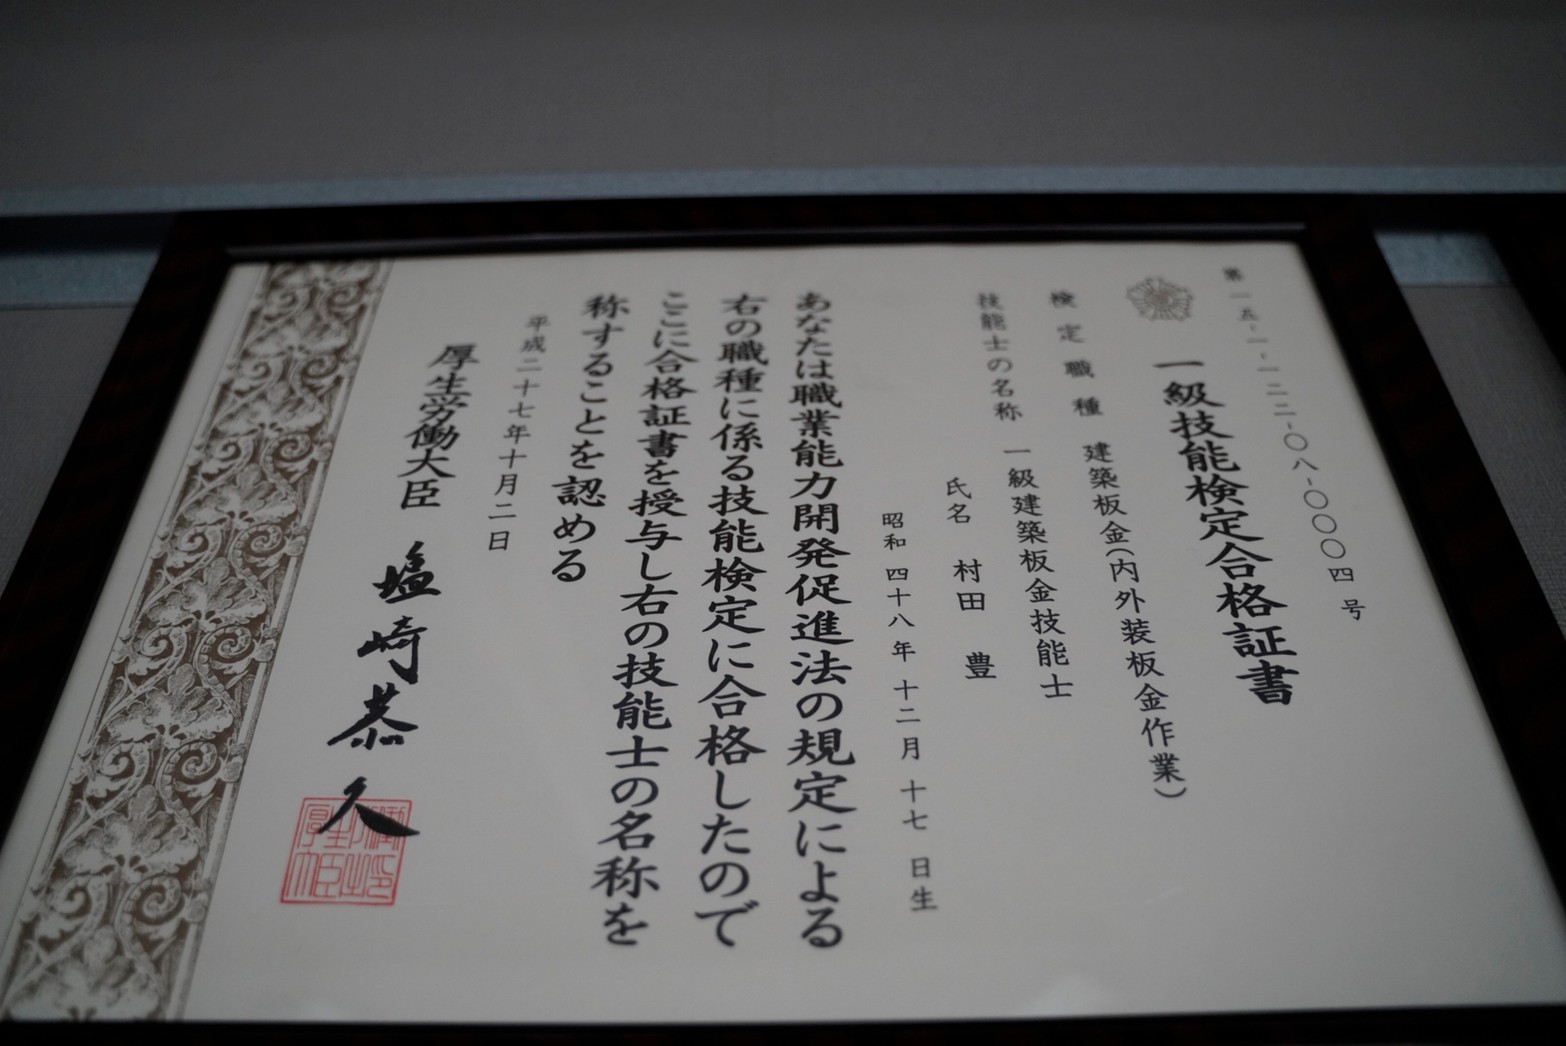 第一五-一-一二二-〇八-〇〇〇四号
一級技能検定合格証書
検定職種 建築板金(内外装板金作業)
技能士の名称 一級建築板金技能士
氏名 村田 豊
昭和四十八年十二月十七日生
あなたは職業能力開発促進法の規定による
右の職種に係る技能検定に合格したので
ここに合格証書を授与し右の技能士の名称を
称することを認める
平成二十七年十月二日
厚生労働大臣 塩崎恭久